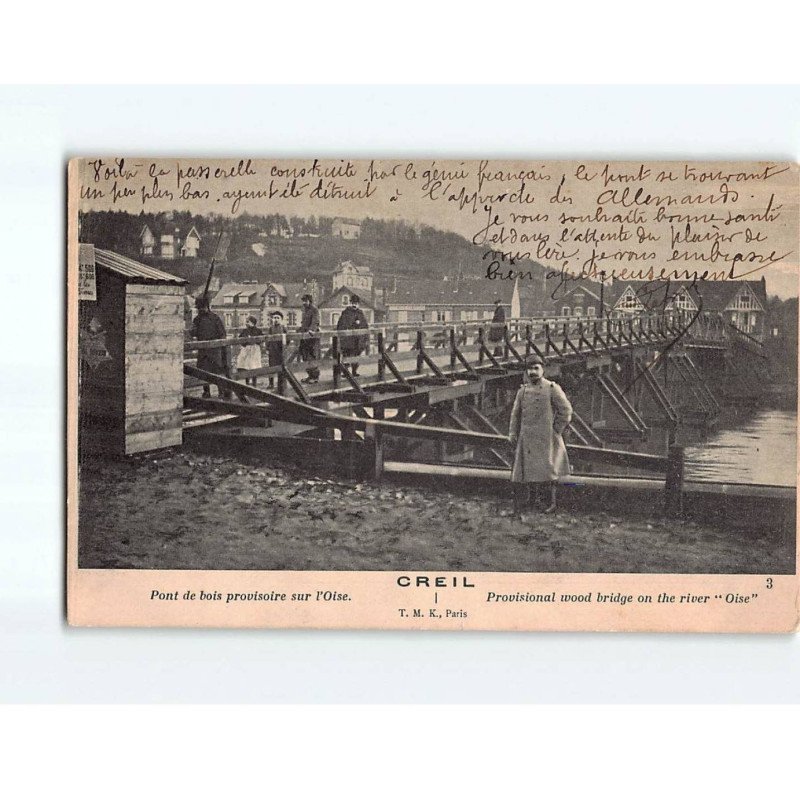 Voilà la passerelle construite par le génie français, le pont se trouvant
un peu plus bas, ayant été détruit à l'approche des Allemands.
Je vous souhaite bonne santé
et dans l'attente du plaisir de
vous lire, je vous embrasse
bien affectueusement
CREIL
3
Pont de bois provisoire sur l'Oise.
Provisional wood bridge on the river "Oise"
T. M. K., Paris